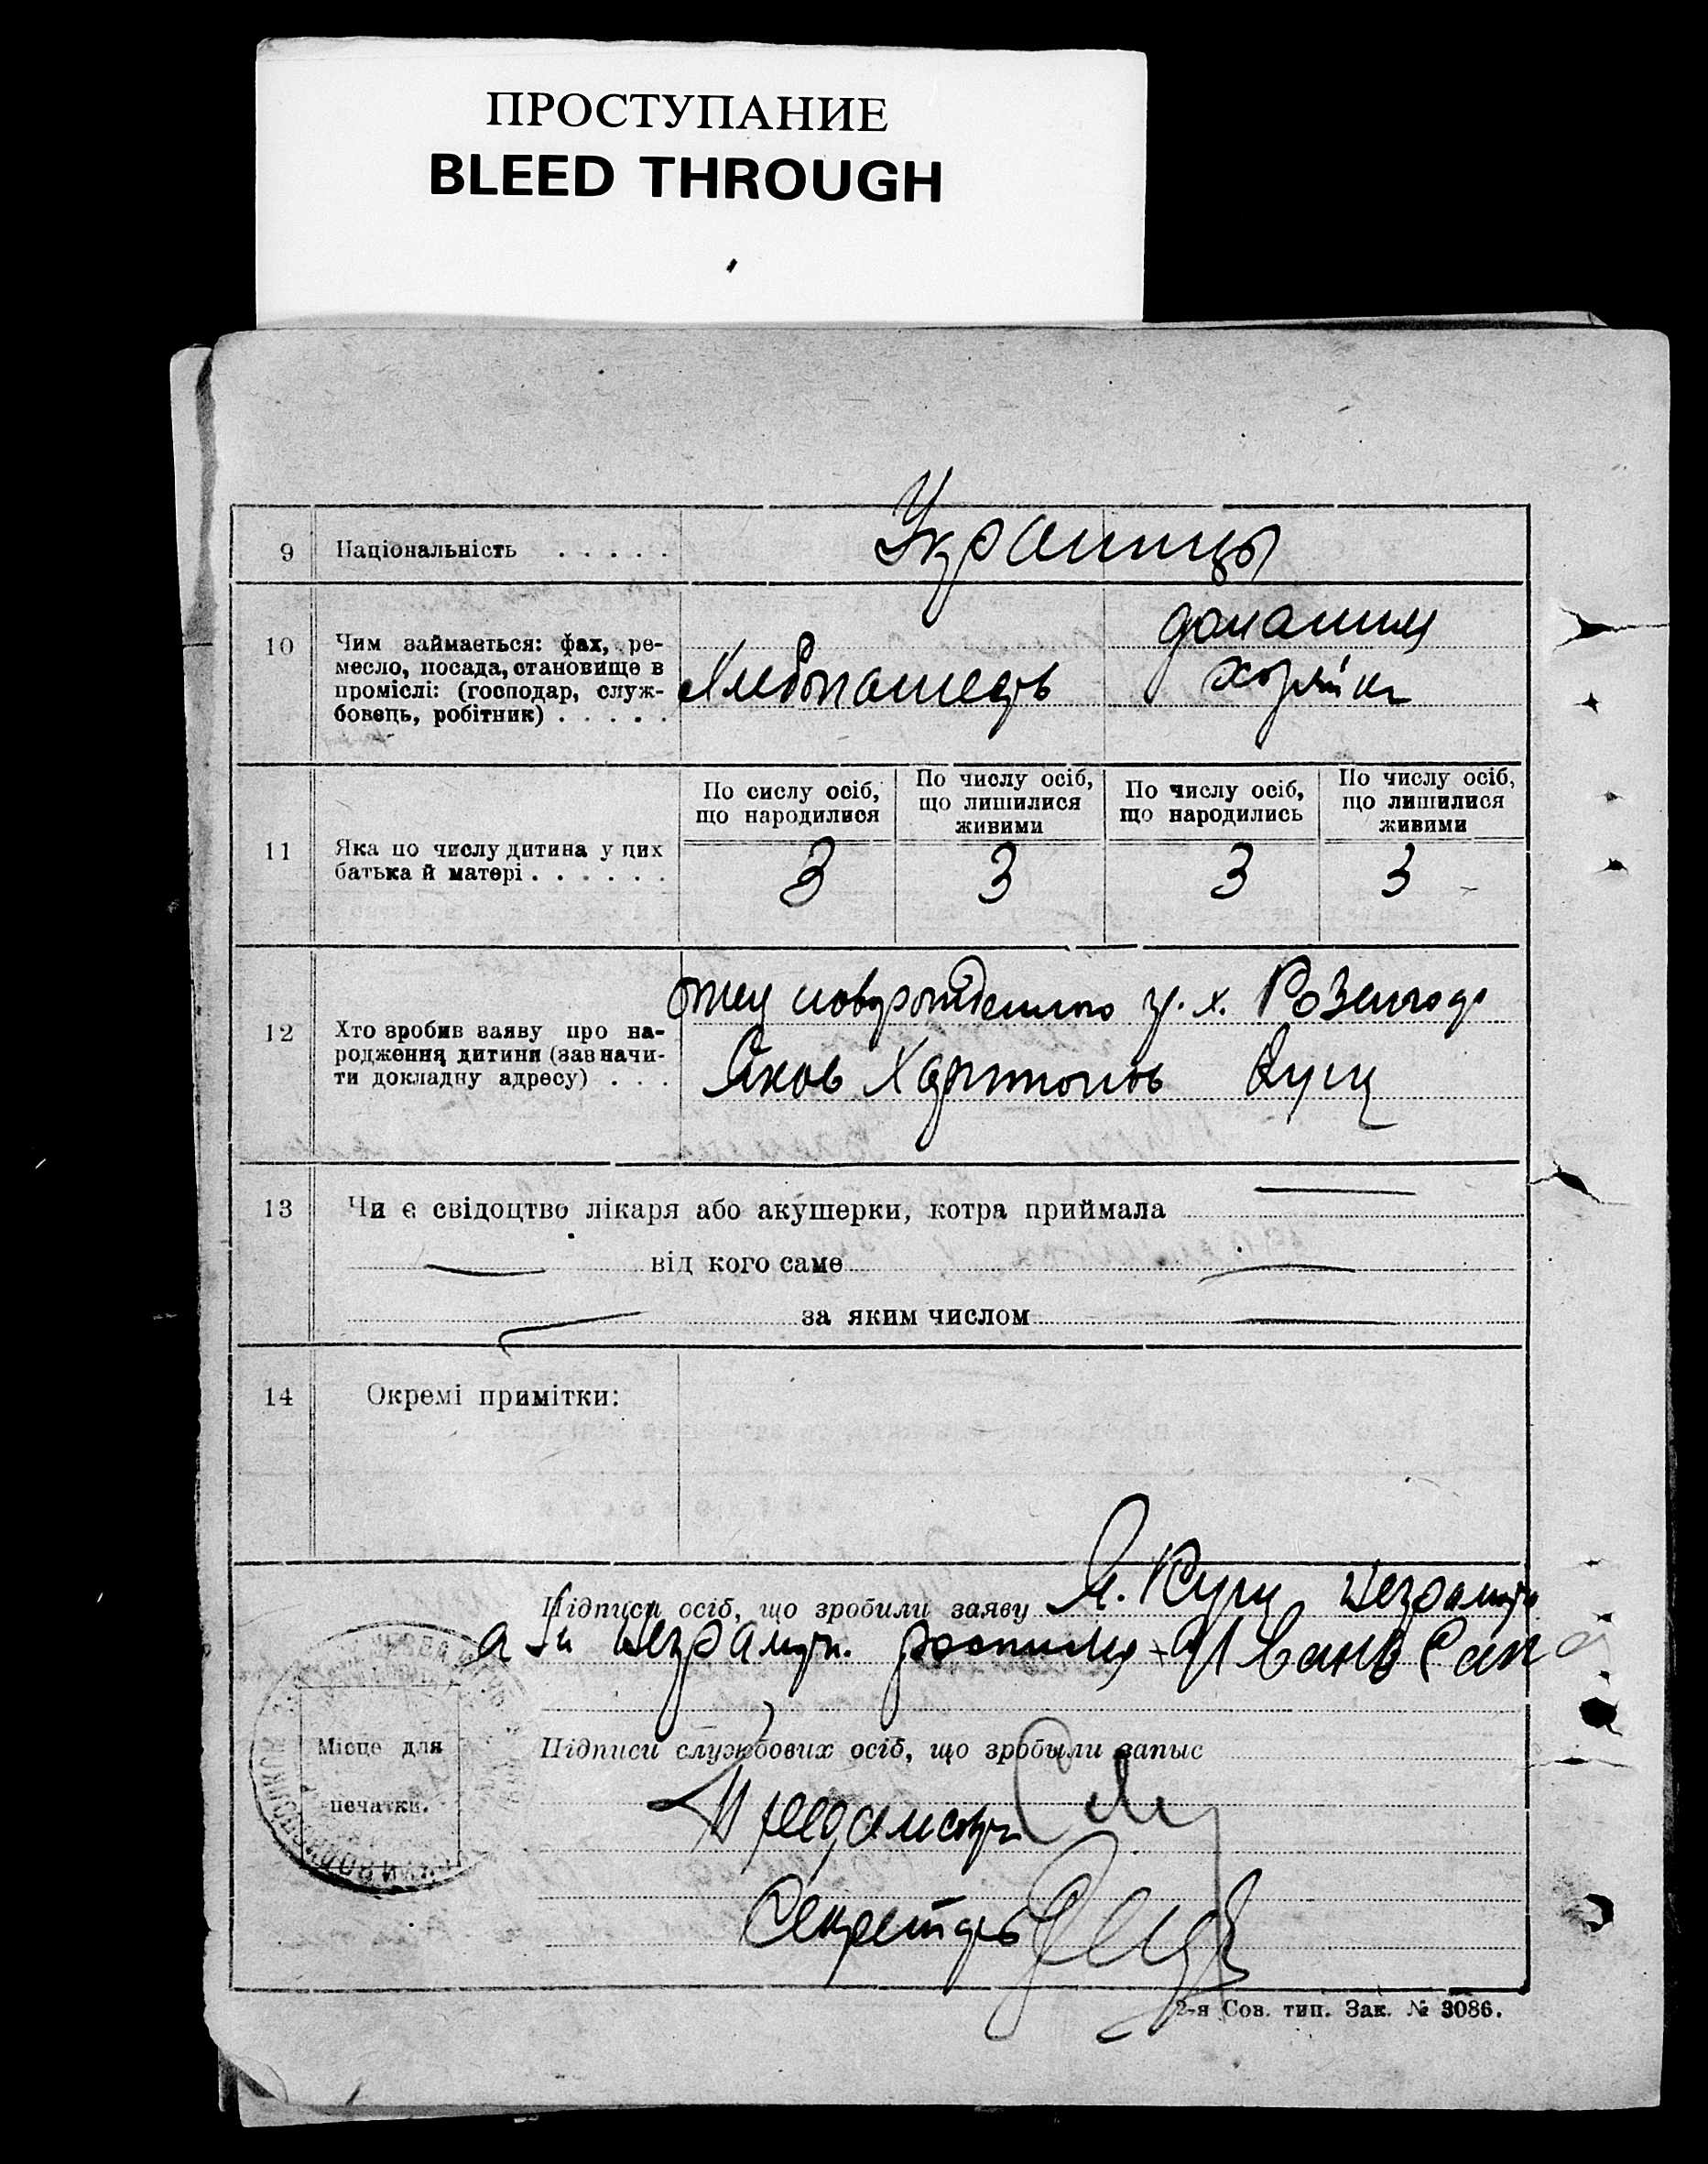 ПРОСТУПАНИЕ
BLEED THROUGH
9 Національність . . . . . Украинцы
10 Чим займається: фах, ре-
месло, посада, становище в
проміслі: (господар, служ-
бовець, робітник) . . . . .
Хлебопашець
домашня
хозяйка
11 Яка по числу дитина у цих
батька й матері . . . . . .
По сислу осіб,
що народилися
3
По числу осіб,
що лишилися
живими
3
По числу осіб,
що народились
3
По числу осіб,
що лишилися
живими
3
12 Хто зробив заяву про на-
родження дитини (зазначи-
ти докладну адресу) . . .
отец новорожденного гр. х.
Яков Харитонов Куц
13 Чи є свідоцтво лікаря або акушерки, котра приймала
від кого саме
за яким числом
14 Окремі примітки:
Підписи осіб, що зробили заяву Я. Куц неграмотн
а за неграмотн. Иван
Місце для
печатки.
Підписи службових осіб, що зробыли запыс
Предсисов
Секретарь
2-я Сов. тип. Зак. № 3086.